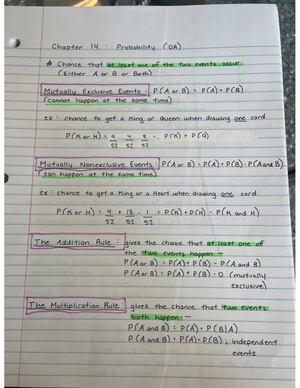 Chapter 14 : Probability (OR)
Chance that at least one of the two events occur
(Either A or B or Both)
Mutually Exclusive Events : P(A or B) = P(A) + P(B)
(cannot happen at the same time)
ex : chance to get a King or Queen when drawing one card
= P(K) + P(Q)
52 52 52
Mutually Nonexclusive Events : P(A or B) = P(A) + P(B) - P(A and B)
(can happen at the same time)
ex : chance to get a King or a Heart when drawing one card
P(K or H) = 4 + 13 - 1 = P(K) + P(H) - P(K and H)
52 52 52
The Addition Rule : gives the chance that at least one of
the two events happen :
P(A or B) = P(A) + P(B) - P(A and B)
P(A or B) = P(A) + P(B) - 0 (mutually
exclusive)
The Multiplication Rule : gives the chance that two events
both happen :
P(A and B) = P(A) · P(B|A)
P(A and B) = P(A) · P(B) ; independent
events